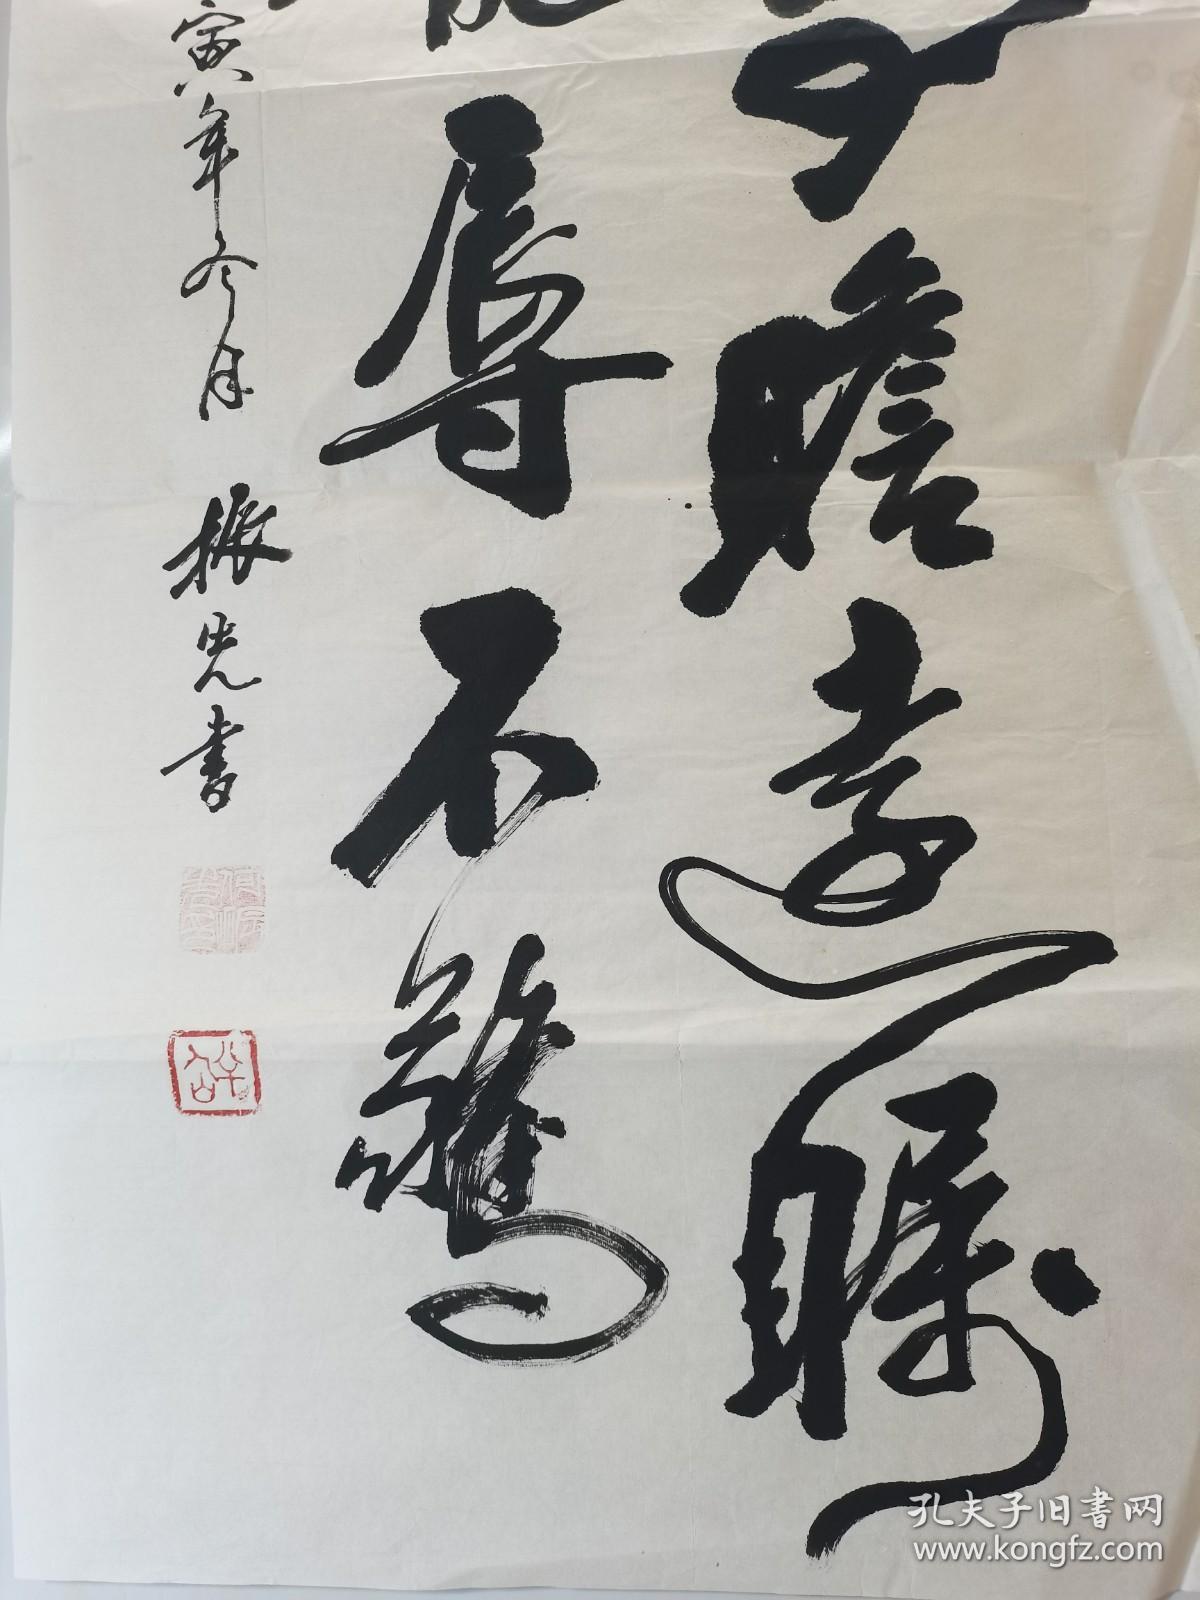 瞻远瞩
辱不惊
寅年冬月 振光書
孔夫子旧書网
www.kongfz.com